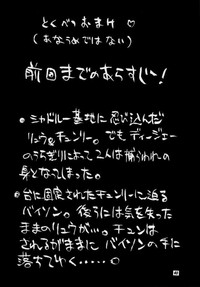 とくべつおまけ♡
(あなうめではない)
前回までのあらすじー!
●シャドルー基地に忍び込んだ
リュウ&チュンリー。でもディージェー
のうらぎりによって2人は捕らわれの
身となってしまった。
●台に固定されたチュンリーに迫る
バイソン。後ろには気を失った
ままのリュウが…。チュンは
されるがままに バイソンの手に
落ちてゆく‥‥‥○